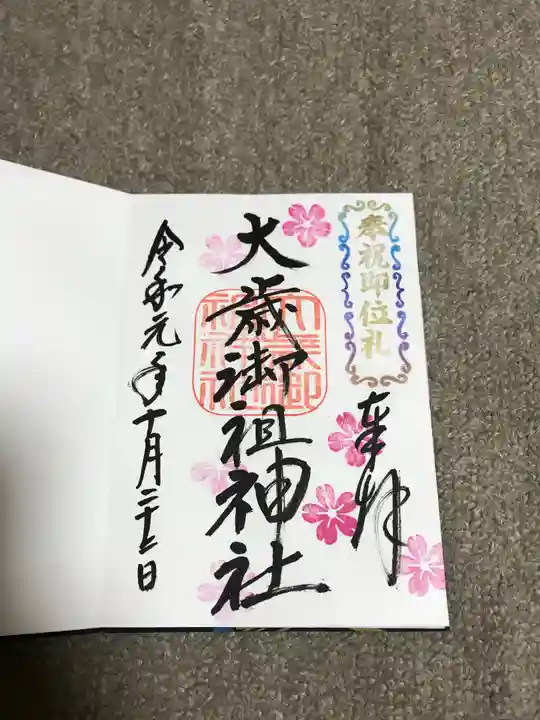 奉祝即位礼
奉拝
大歳御祖神社
大歳御祖神社
令和元年十月二十二日